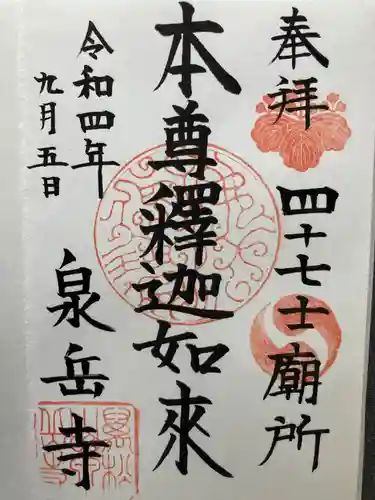 奉拝 四十七士廟所
本尊釋迦如來
令和四年
九月五日
泉岳寺